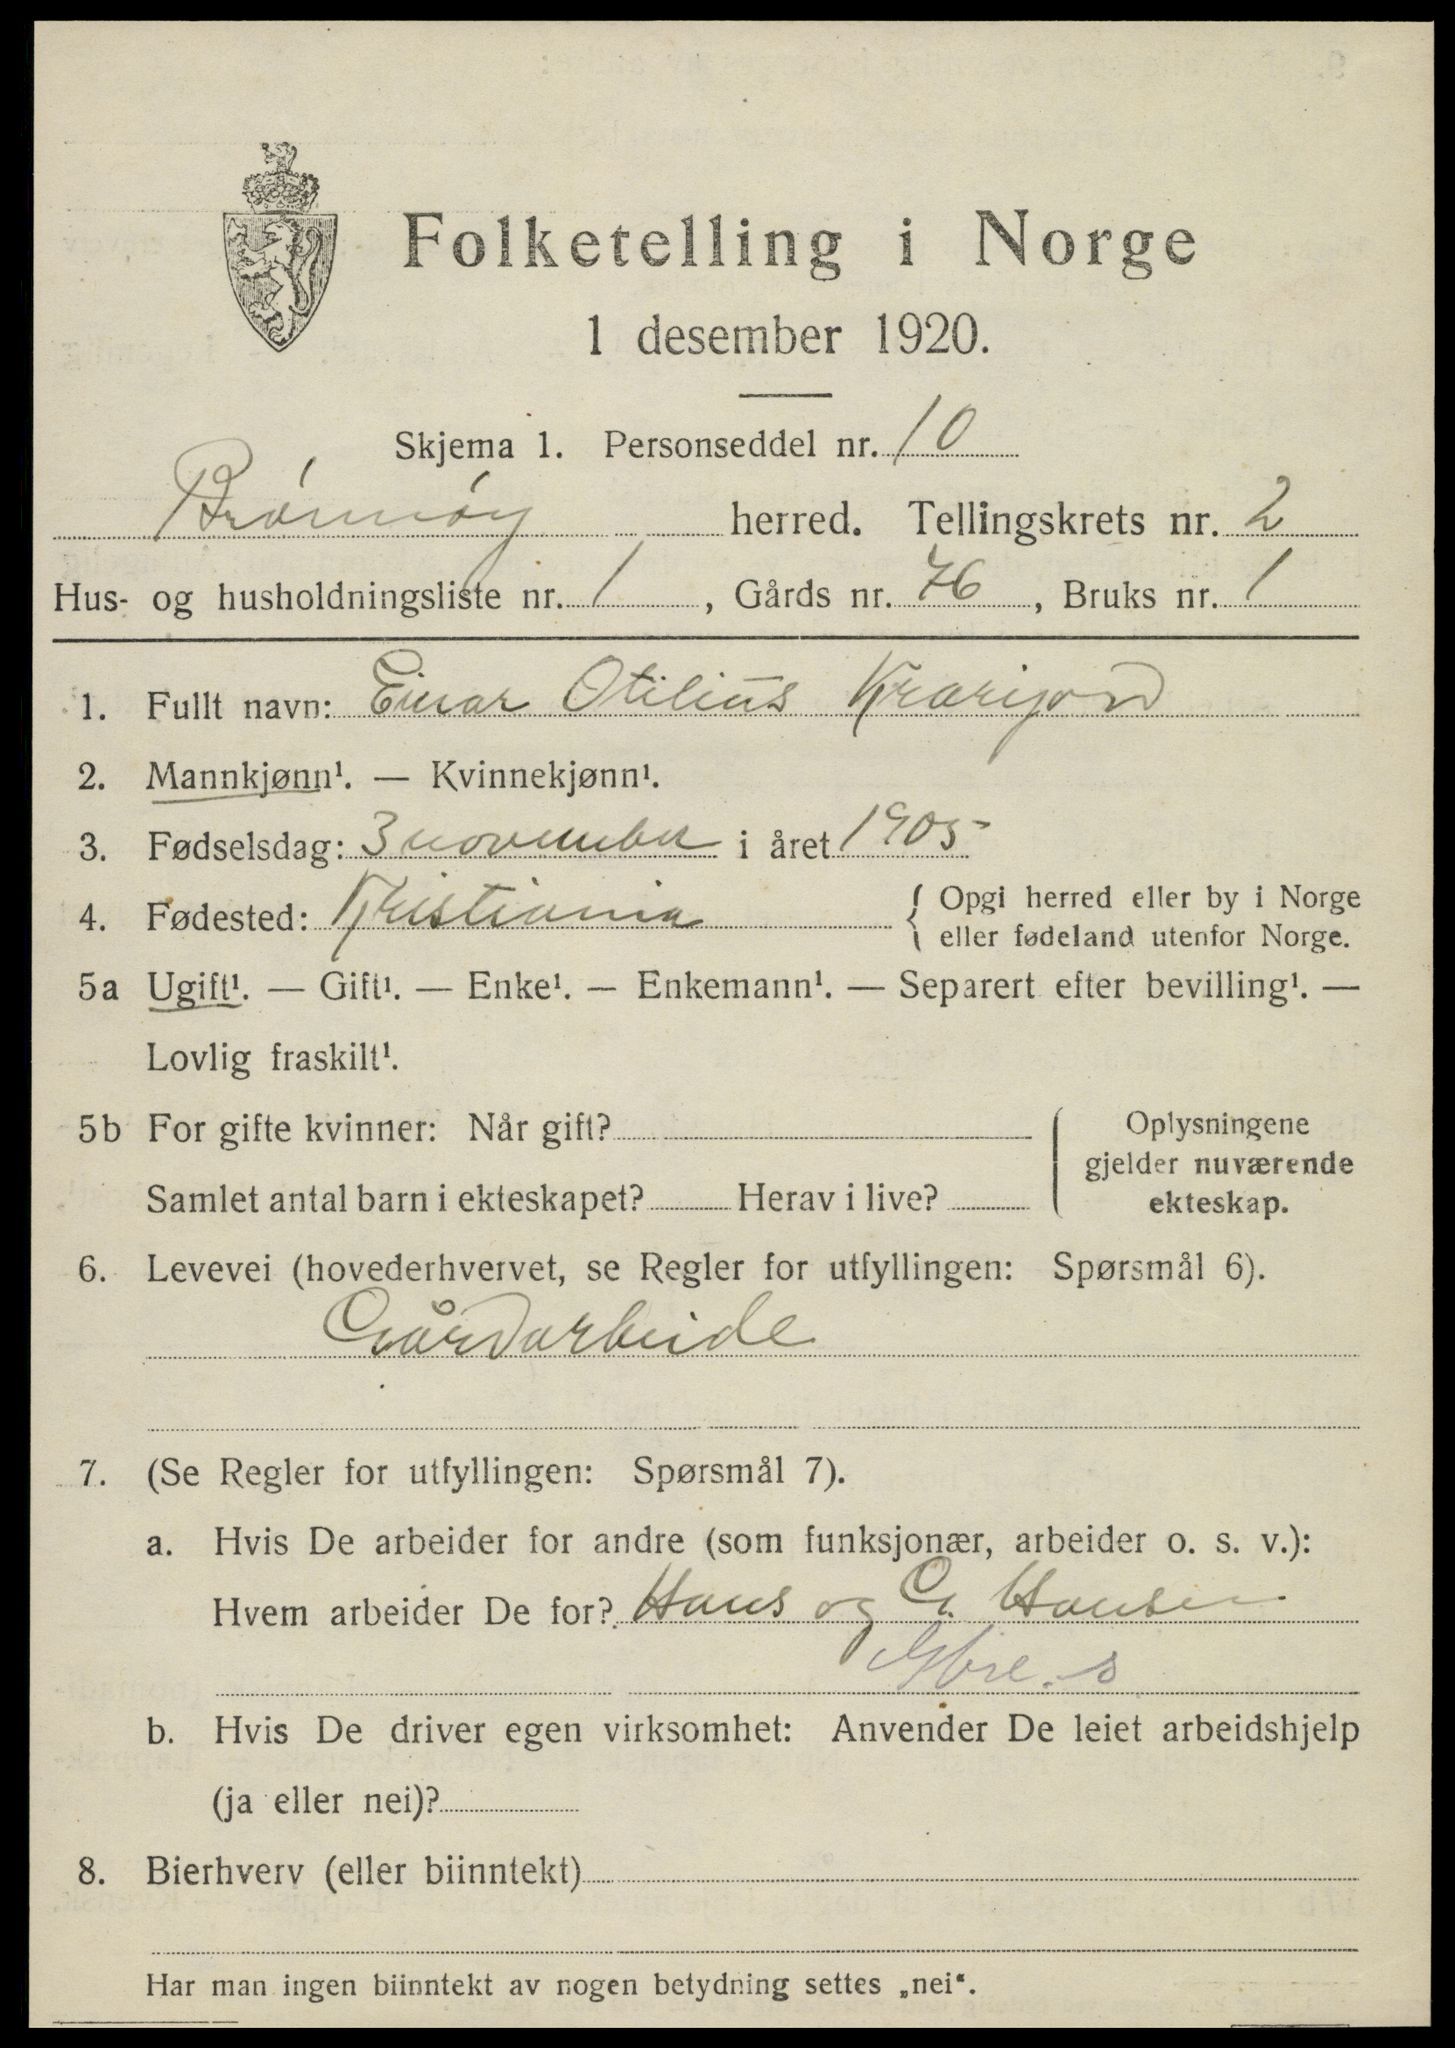 Folketelling i Norge
1 desember 1920.
Skjema 1. Personseddel nr. 10
Brönnöy herred. Tellingskrets nr. 2
Hus- og husholdningsliste nr. 1, Gårds nr. 76, Bruks nr. 1
1. Fullt navn: Einar Otilius
2. Mannkjønn¹. — Kvinnekjønn¹.
3. Fødselsdag: 3 november i året 1905
4. Fødested: Kristiania { Opgi herred eller by i Norge
eller fødeland utenfor Norge.
5a Ugift¹. — Gift¹. — Enke¹. — Enkemann¹. — Separert efter bevilling¹. —
Lovlig fraskilt¹.
5b For gifte kvinner: Når gift?
Samlet antal barn i ekteskapet? Herav i live?
Oplysningene
gjelder nuværende
ekteskap.
6. Levevei (hovederhvervet, se Regler for utfyllingen: Spørsmål 6).
Gårdarbeide
7. (Se Regler for utfyllingen: Spørsmål 7).
a. Hvis De arbeider for andre (som funksjonær, arbeider o. s. v.):
Hvem arbeider De for? Hans og G. Hansen
b. Hvis De driver egen virksomhet: Anvender De leiet arbeidshjelp
(ja eller nei)?
8. Bierhverv (eller biinntekt)
Har man ingen biinntekt av nogen betydning settes „nei“.